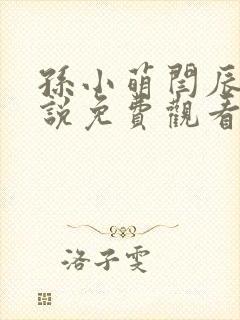 孫小萌閆辰
說免費觀看
洛子雯